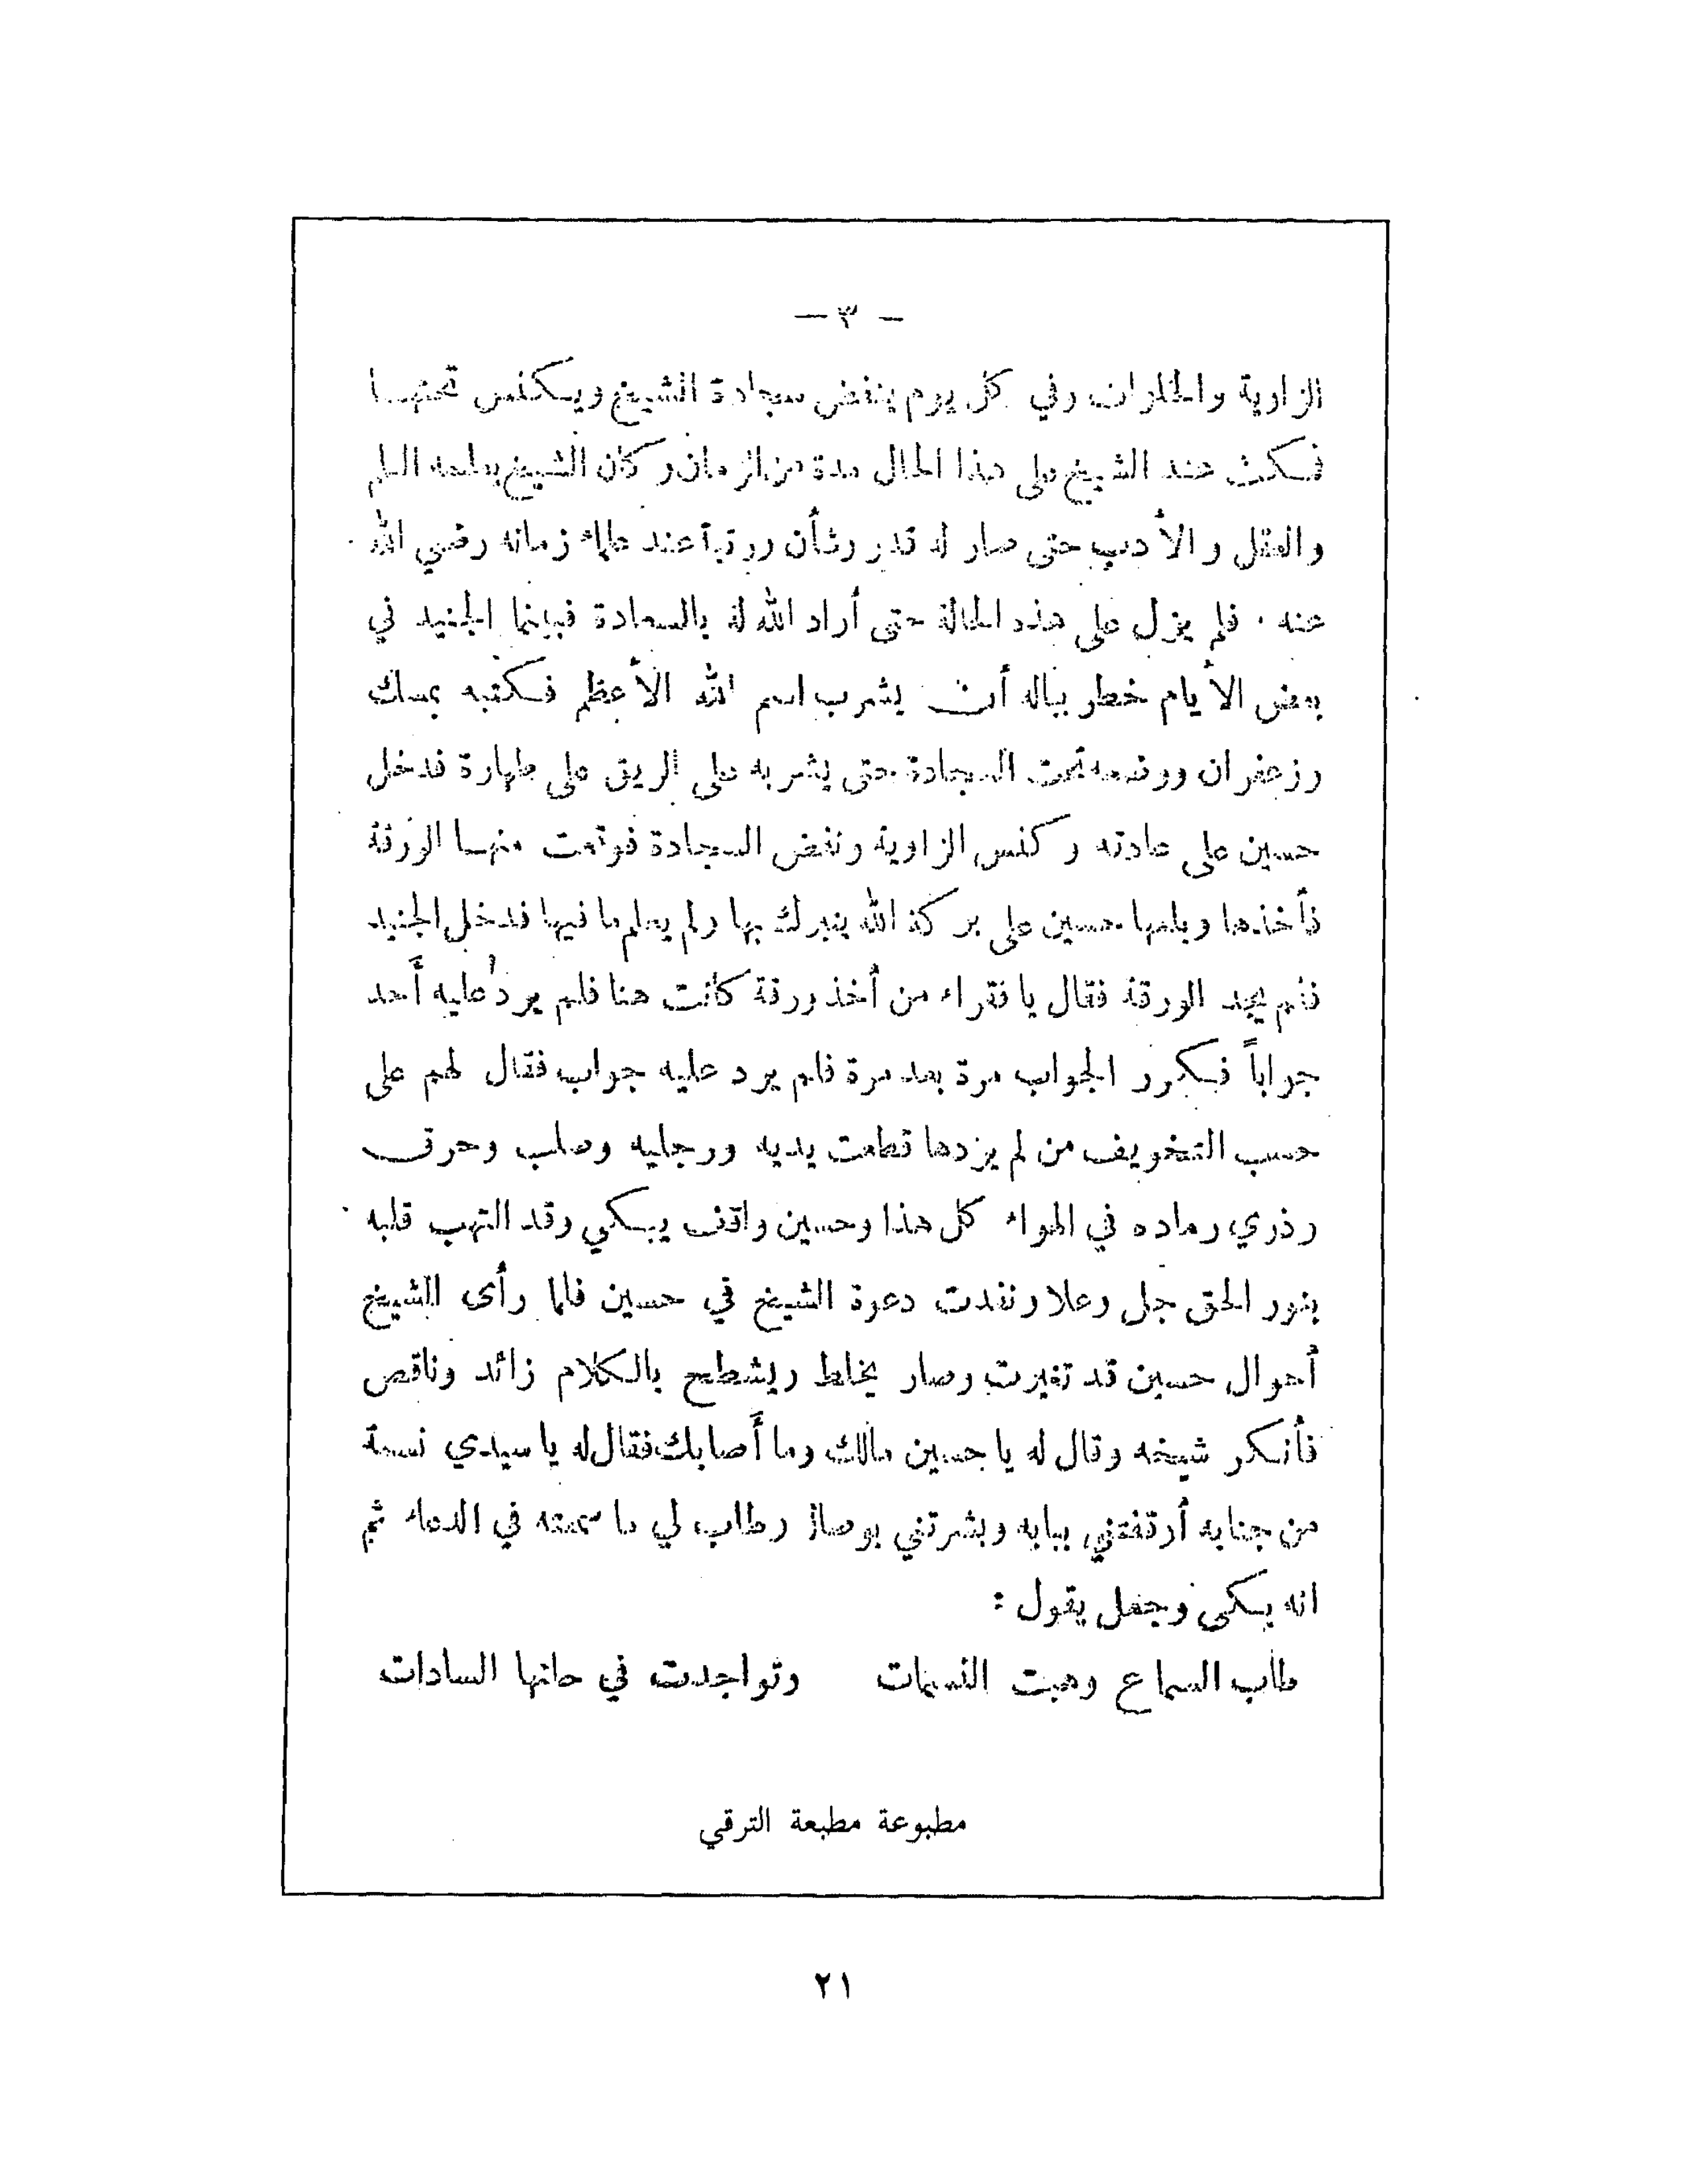 — ٣ —
الزاوية والخلوات وفي كل يوم ينفض سجادة الشيخ ويكنس تحتها
فمكث عند الشيخ على هذا الحال مدة من الزمان وكان الشيخ يعلمه العلم
والعقل والأدب حتى صار له قدر وشأن ورتبة عند علماء زمانه رضي الله
عنه . فلم يزل على هذه الحالة حتى أراد الله له بالسعادة فبينما الجنيد في
بعض الأيام خطر بباله أن يشرب اسم الله الأعظم فكتبه بمسك
وزعفران ووضعه تحت السجادة حتى يشربه على الريق على طهارة فدخل
حسين على عادته وكنس الزاوية ونفض السجادة فوقعت منها الورقة
فأخذها وبلعها حسين على بركة الله يتبرك بها ولم يعلم ما فيها فدخل الجنيد
فلم يجد الورقة فقال يا فقراء من أخذ ورقة كانت هنا فلم يرد عليه أحد
جواباً فكرر الجواب مرة بعد مرة فلم يرد عليه جواب فقال لهم على
حسب التخويف من لم يردها قطعت يديه ورجليه وصلب وحرق
وذري رماده في الهواء كل هذا وحسين واقف يبكي وقد التهب قلبه
بنور الحق جل وعلا ونفدت دعوة الشيخ في حسين فلما رأى الشيخ
أحوال حسين قد تغيرت وصار يخلط ويشطح بالكلام زائد وناقص
فأنكر شيخه وقال له يا حسين مالك وما أصابك فقال له يا سيدي نسمة
من جنابه أوقفتني ببابه وبشرتني بوصاله وطلب لي ما سمعته في الدعاء ثم
انه بكى وجعل يقول :
طاب السماع وهبت النسمات وتواجدت في حانها السادات
مطبوعة مطبعة الترقي
٢١